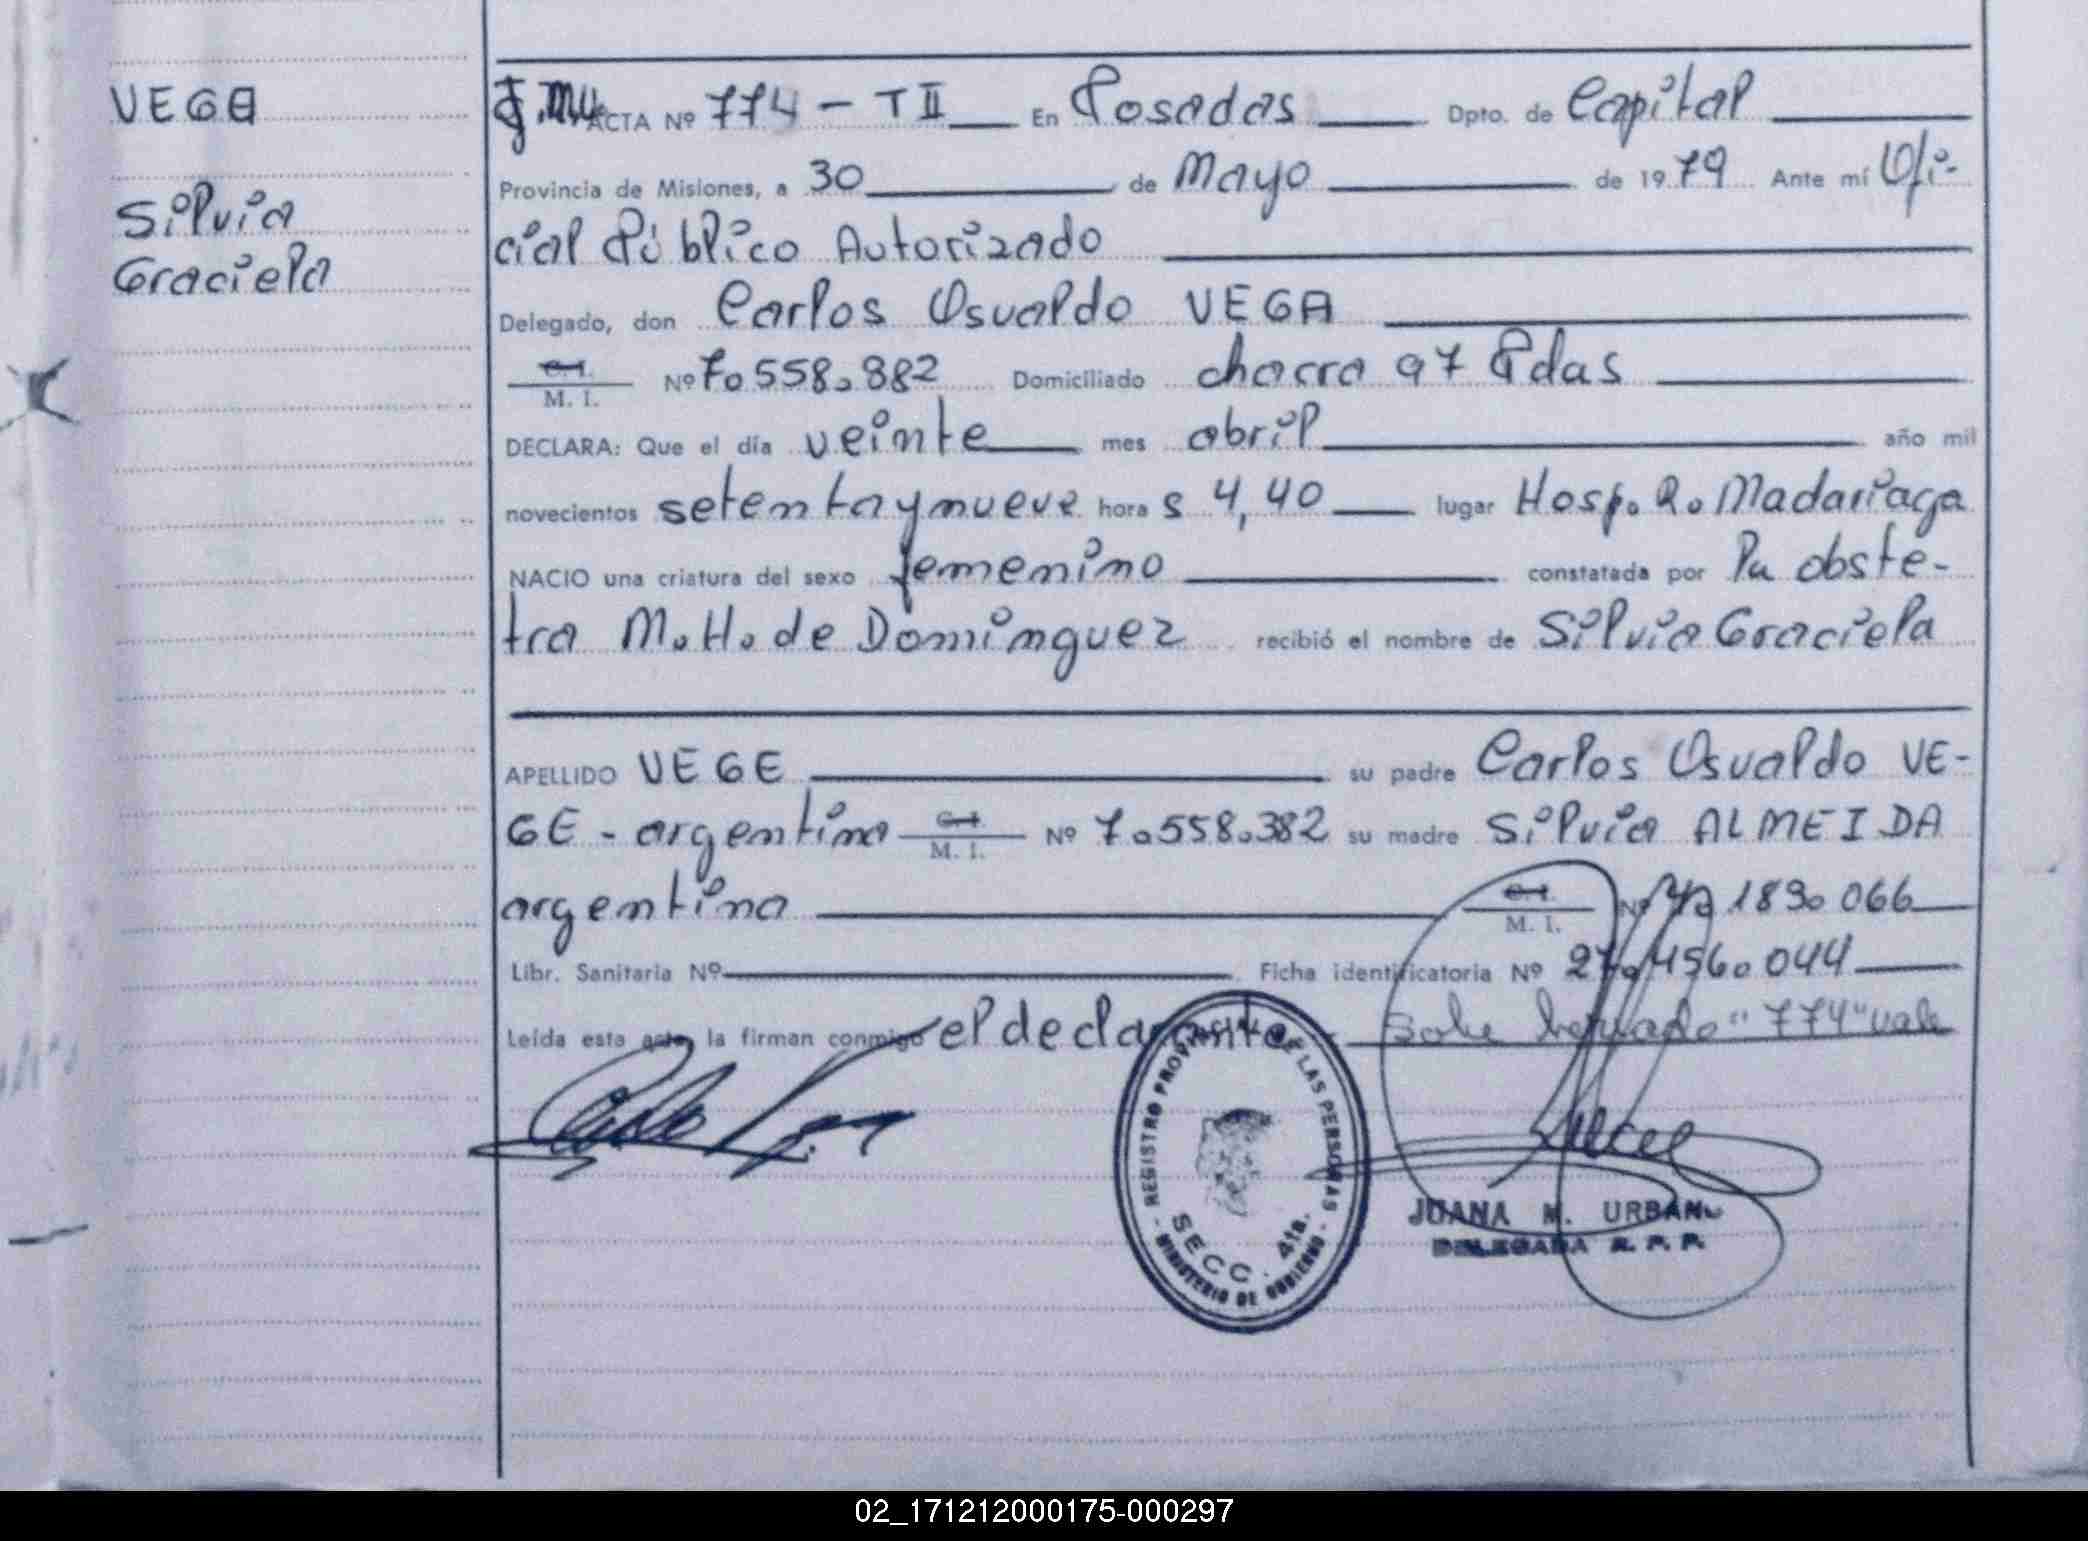 VEGA
Silvia
Graciela
ACTA Nº 774 - T II En Posadas Dpto. de Capital
Provincia de Misiones, a 30 de Mayo de 1979 Ante mí Ofi-
cial Público Autorizado
Delegado, don Carlos Osvaldo VEGA
C. I.
M. I. Nº 7.558.882 Domiciliado chacra 97 Pdas
DECLARA: Que el día veinte mes abril año mil
novecientos setenta y nueve hora s 4,40 lugar Hosp. R. Madariaga
NACIO una criatura del sexo femenino constatada por la obste-
tra M. H. de Dominguez recibió el nombre de Silvia Graciela
APELLIDO VEGE su padre Carlos Osvaldo VE-
GE - argentino C. I. M. I. Nº 7.558.382 su madre Silvia ALMEIDA
argentina C. I. M. I. Nº 189.066
Libr. Sanitaria Nº Ficha identificatoria Nº 27.456.044
Leída esta acta la firman conmigo el declarante. Sobre borrado "774" vale
REGISTRO PROVINCIAL DE LAS PERSONAS
SECC. 4ta.
- MINISTERIO DE GOBIERNO -
JUANA M. URBAN
DELEGADA R. P. P.
02_171212000175-000297